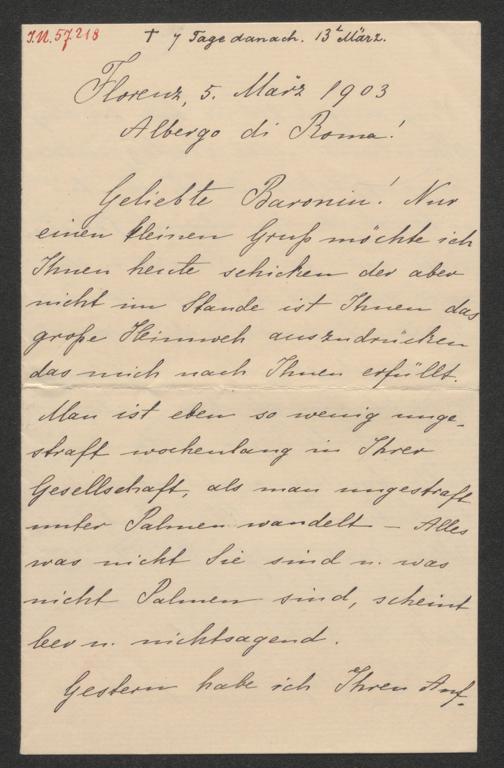 I.N. 57.218
† 7 Tage danach. 13t März.
Florenz, 5. März 1903
Albergo di Roma!
Geliebte Baronin! Nur
einen kleinen Gruß möchte ich
Ihnen heute schicken der aber
nicht im Stande ist Ihnen das
große Heimweh auszudrücken
das mich nach Ihnen erfüllt.
Man ist eben so wenig unge-
straft wochenlang in Ihrer
Gesellschaft, als man ungestraft
unter Palmen wandelt – Alles
was nicht Sie sind u. was
nicht Palmen sind, scheint
leer u. nichtsagend.
Gestern habe ich Ihren Auf-